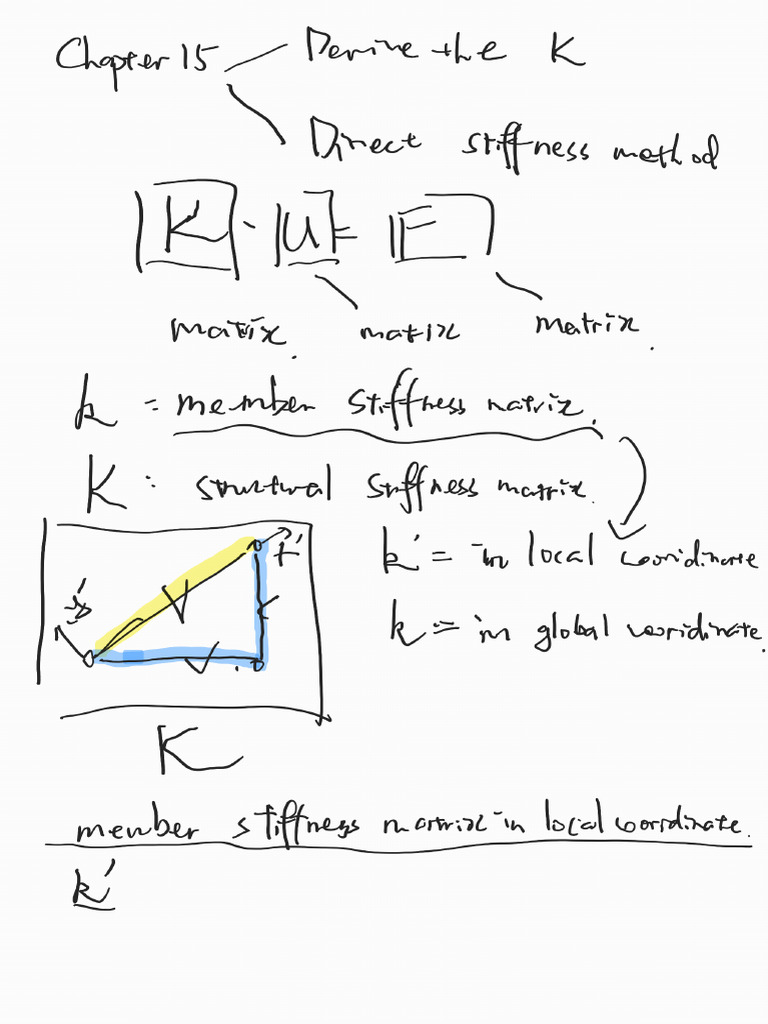 Chapter 15
Derive the K
Direct stiffness method
[K] · [U] = [F]
matrix. matrix matrix.
k = member stiffness matrix.
K : structural stiffness matrix.
k' = in local cooridinate
k = in global cooridinate.
K
member stiffness matrix in local cooridinate.
k'